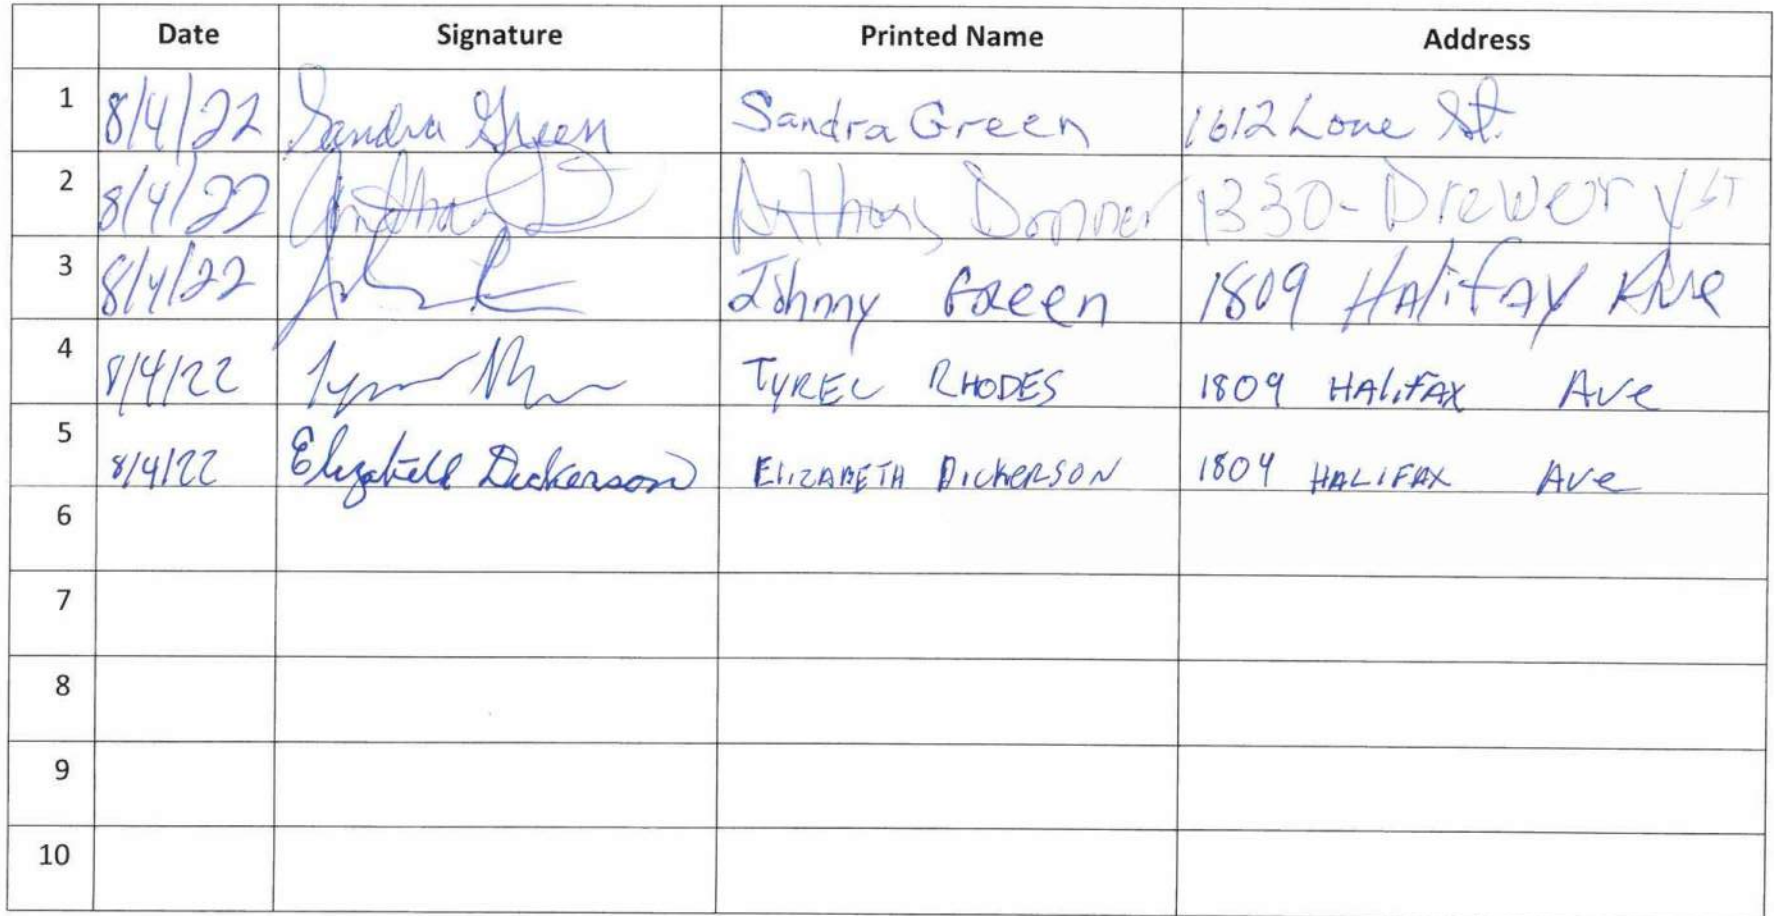 Date Signature Printed Name Address
1 8/4/22 Sandra Green Sandra Green 1612 Lowe St.
2 8/4/22 Anthony Donner 1330 - Drewery ST
3 8/4/22 Johnny Green 1809 Halifax Ave
4 8/4/22 TYREL RHODES 1809 HALIFAX Ave
5 8/4/22 Elizabeth Dickerson ELIZABETH DICKERSON 1809 HALIFAX Ave
6
7
8
9
10